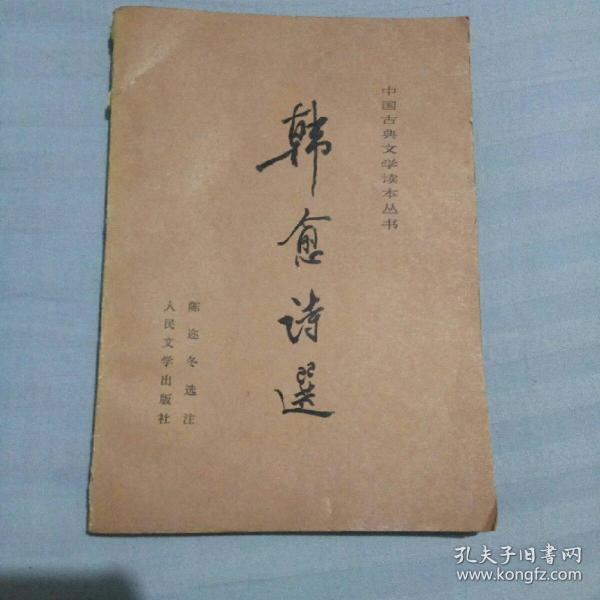 中国古典文学读本丛书
韩愈诗選
陈迩冬选注
人民文学出版社
孔夫子旧書网
www.kongfz.com